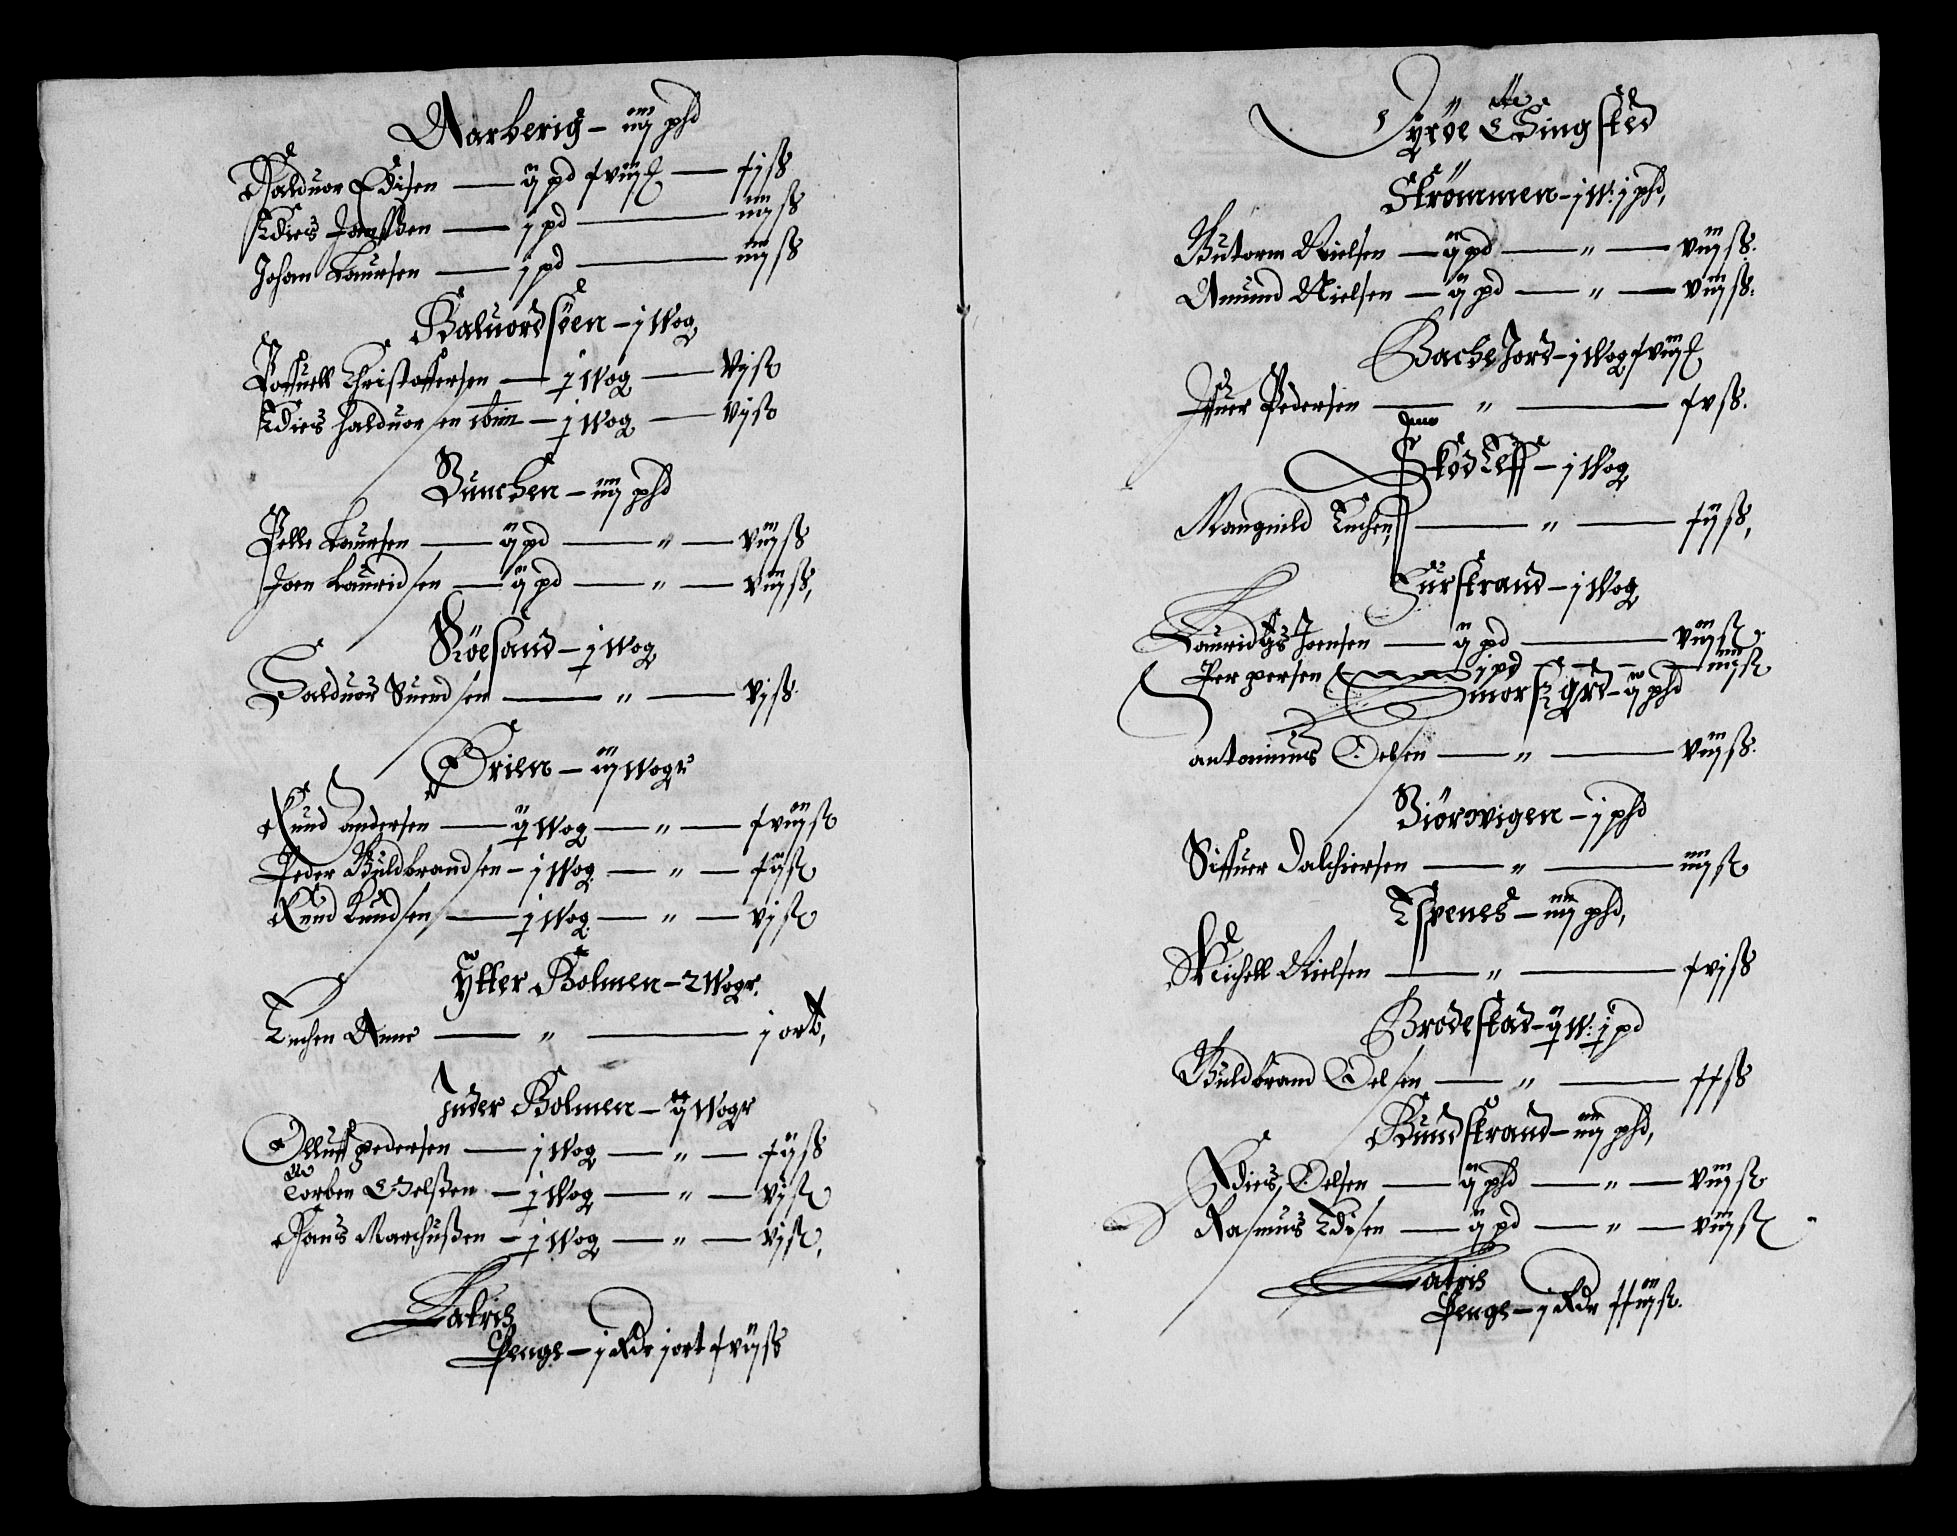 Aarberig – iiij phd
Haluor Edisen — ij pd xviij — xj ß
Edies Joensen — j pd — iiij ß
Johan Laursen — j pd — iiij ß
Baluordsöen – j Wog
Povell Christoffersen — j Wog — vj ß
Edies Halduorsen ibm – j Wog — vj ß
Bunchen – iiij phd
Pelle Laursen — ij pd — " — viij ß
Joen Lauridsen — ij pd — " — viij ß,
Röesand – j Wog
Halduor Suendsen — " — vj ß
Grilen – iij Wogr
Knud Andersen — ij Wog — " — xviij ß
Peder Guldbrandsen – j Wog — " — xij ß
Knud Knudsen — j Wog — " — vj ß
Ytter Holmen – 2 Wogr.
Enchen Anne — " — j ort,
Inder Holmen – ij Wogr
Olluff pedersen — j Wog — " — xij ß
Torben Oelsen — j Wog — " — vj ß
Hans Marchusen – j Wog — " — vj ß,
Latris
Penge – j Rdr j ort xvij ß
Tyröe Tingsted
Strömmen – j W: j phd,
Gutorm Nielsen — ij pd — " — viij ß.
Amund Nielsen — ij pd — " — viij ß.
Bache Jord – j Wog xviij
Iffuer Pedersen — " — xv ß.
Skodleff – j Wog
Mangnild Enchen — " — xij ß,
Surstrand – j Wog
Lauridtz Joensen — ij pd — viij ß
Per persen — j pd — iiij ß
Smorsgrd – ij phd
antonius Oelsen — " — viij ß.
Biörvigen – j phd
Siffuer Dalchiersen — " — iiij ß
Espenes – iiij phd,
Michell Nielsen — " — xvj ß
Brodestad – ij W: j pd
Guldbrand Oelsen — " — xx ß
Bundstrand – iiij phd,
Edies Oelsen — ij phd — " — viij ß
Rasmus Edisen — ij pd — " — viij ß
Latris
Penge – j Rdr xxiij ß.